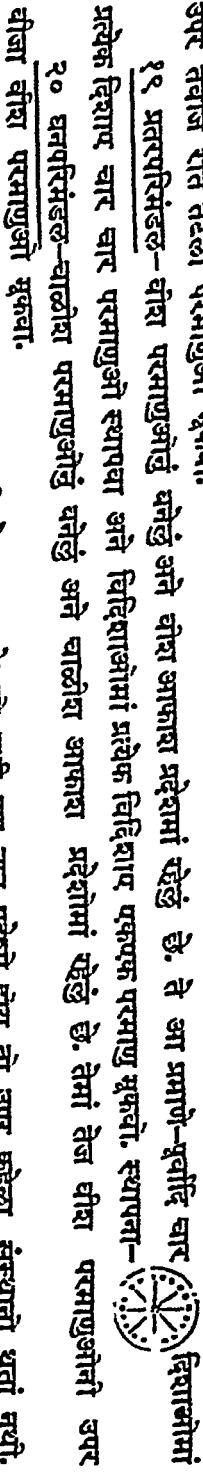 उपर तेवीज रीते तेटला परमाणुओ मूकवा.
१९ प्रतरपरिमंडल–वीश परमाणुओनुं बनेलुं अने वीश आकाश प्रदेशोमां रहेलुं छे. ते आ प्रमाणे–पूर्वादि चार दिशाओमां
प्रत्येक दिशाए चार चार परमाणुओ स्थापवा अने विदिशाओमां प्रत्येक विदिशाए एकएक परमाणु मूकवो. स्थापना–
२० घनपरिमंडल–चाळीश परमाणुओनुं बनेलुं अने चाळीश आकाश प्रदेशोमां रहेलुं छे. तेमां तेज वीश परमाणुओनी उपर
बीजा वीश परमाणुओ मूकवा.
संस्थानो थतां नथी.